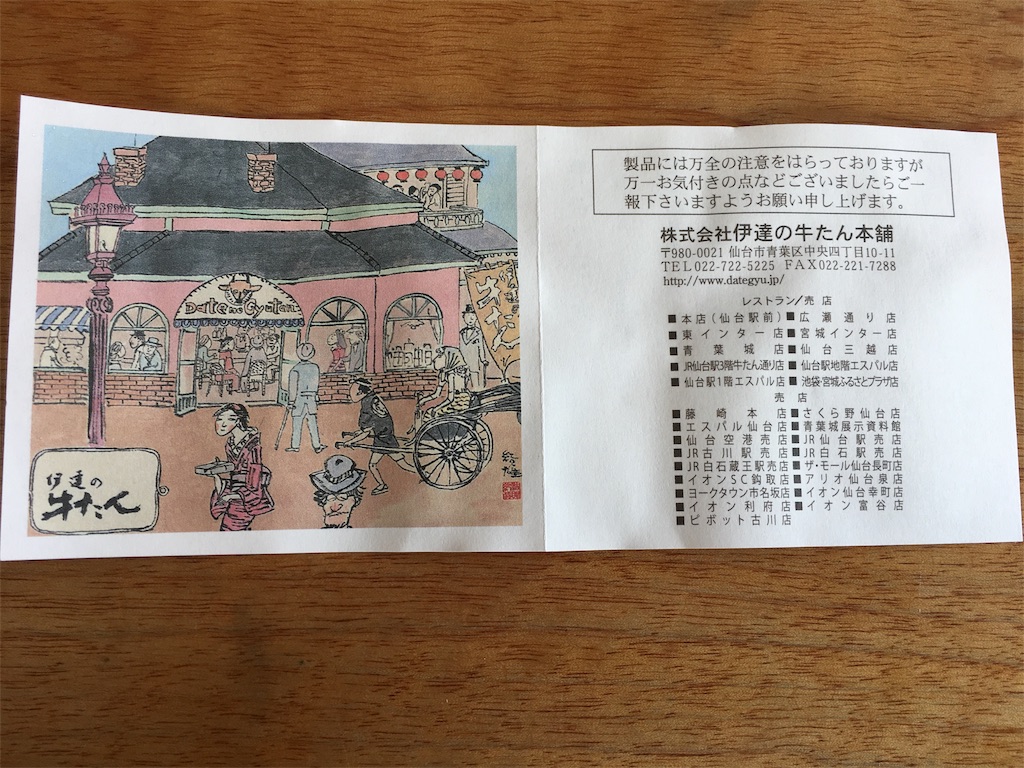 Date no Gyutan
牛たん
伊達の
牛たん
製品には万全の注意をはらっておりますが
万一お気付きの点などございましたらご一
報下さいますようお願い申し上げます。
株式会社伊達の牛たん本舗
〒980-0021 仙台市青葉区中央四丁目10-11
TEL022-722-5225 FAX022-221-7288
http://www.dategyu.jp/
レストラン/売店
■本店(仙台駅前)■広瀬通り店
■東インター店■宮城インター店
■青葉城店■仙台三越店
■JR仙台駅3階牛たん通り店■仙台駅地階エスパル店
■仙台駅1階エスパル店■池袋・宮城ふるさとプラザ店
売店
■藤崎本店■さくら野仙台店
■エスパル仙台店■青葉城展示資料館
■仙台空港売店■JR仙台駅売店
■JR古川駅売店■JR白石駅売店
■JR白石蔵王駅売店■ザ・モール仙台長町店
■イオンSC鈎取店■アリオ仙台泉店
■ヨークタウン市名坂店■イオン仙台幸町店
■イオン利府店■イオン富谷店
■ピボット古川店